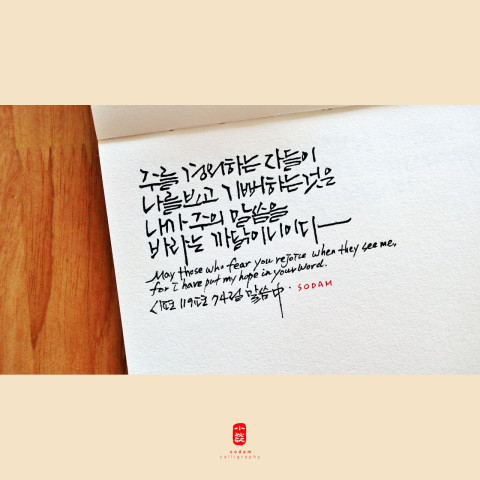 주를 경외하는 자들이
나를 보고 기뻐하는 것은
내가 주의 말씀을
바라는 까닭이니이다
May those who fear you rejoice when they see me,
for I have put my hope in your word.
<시편 119편 74절 말씀 中. SODAM
sodam
calligraphy